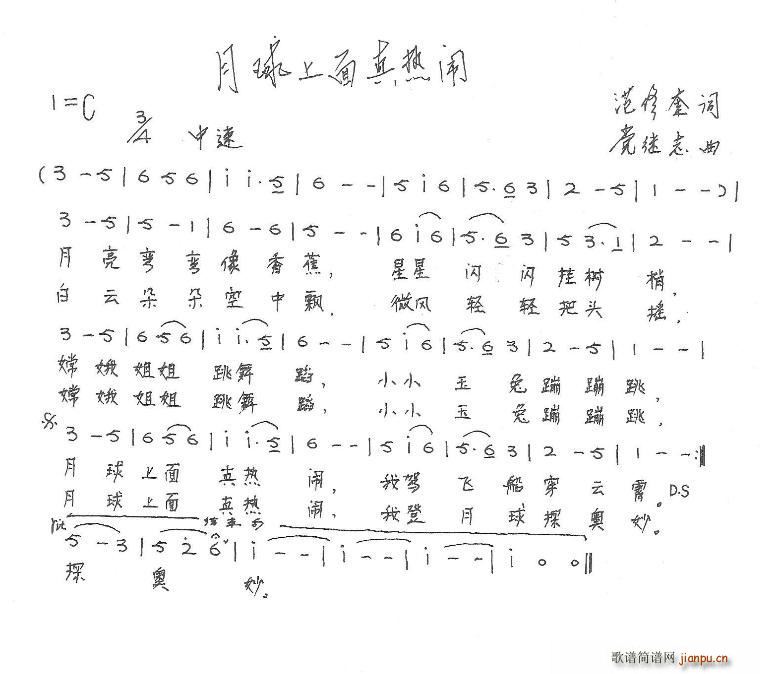 月球上面真热闹
1=C 3/4 中速
范修奎 词
党继志 曲
( 3 - 5 | 6 5 6 | i i. 5 | 6 - - | 5 i 6 | 5. 6 3 | 2 - 5 | 1 - - ) |
3 - 5 | 5 - 1 | 6 - 6 | 5 - - | 6 i 6 | 5. 6 3 | 5 3. 1 | 2 - - |
月 亮 弯 弯 像 香 蕉， 星星 闪 闪 挂 树 梢，
白 云 朵 朵 空 中 飘， 微风 轻 轻 把 头 摇，
3 - 5 | 6 5 6 | i i. 5 | 6 - - | 5 i 6 | 5. 6 3 | 2 - 5 | 1 - - |
嫦 娥 姐姐 跳舞 蹈， 小小 玉 兔 蹦 蹦 跳，
嫦 娥 姐姐 跳舞 蹈， 小小 玉 兔 蹦 蹦 跳，
3 - 5 | 6 5 6 | i i. 5 | 6 - - | 5 i 6 | 5. 6 3 | 2 - 5 | 1 - - :||
月 球 上面 真热 闹， 我驾 飞 船 穿 云 霄。 D.S
月 球 上面 真热 闹， 我登 月 球 探 奥 妙。
结束句
5 - 3 | 5 2 6 | i - - | i - - | i - - | i 0 0 ||
探 奥 妙。
歌谱简谱网
jianpu.cn